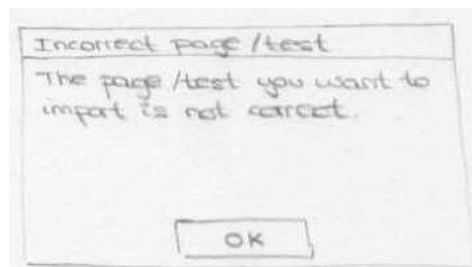 Incorrect page/test
The page/test you want to
import is not correct.
OK